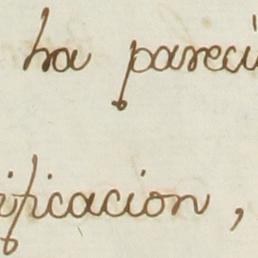 ha pareci
ificacion,